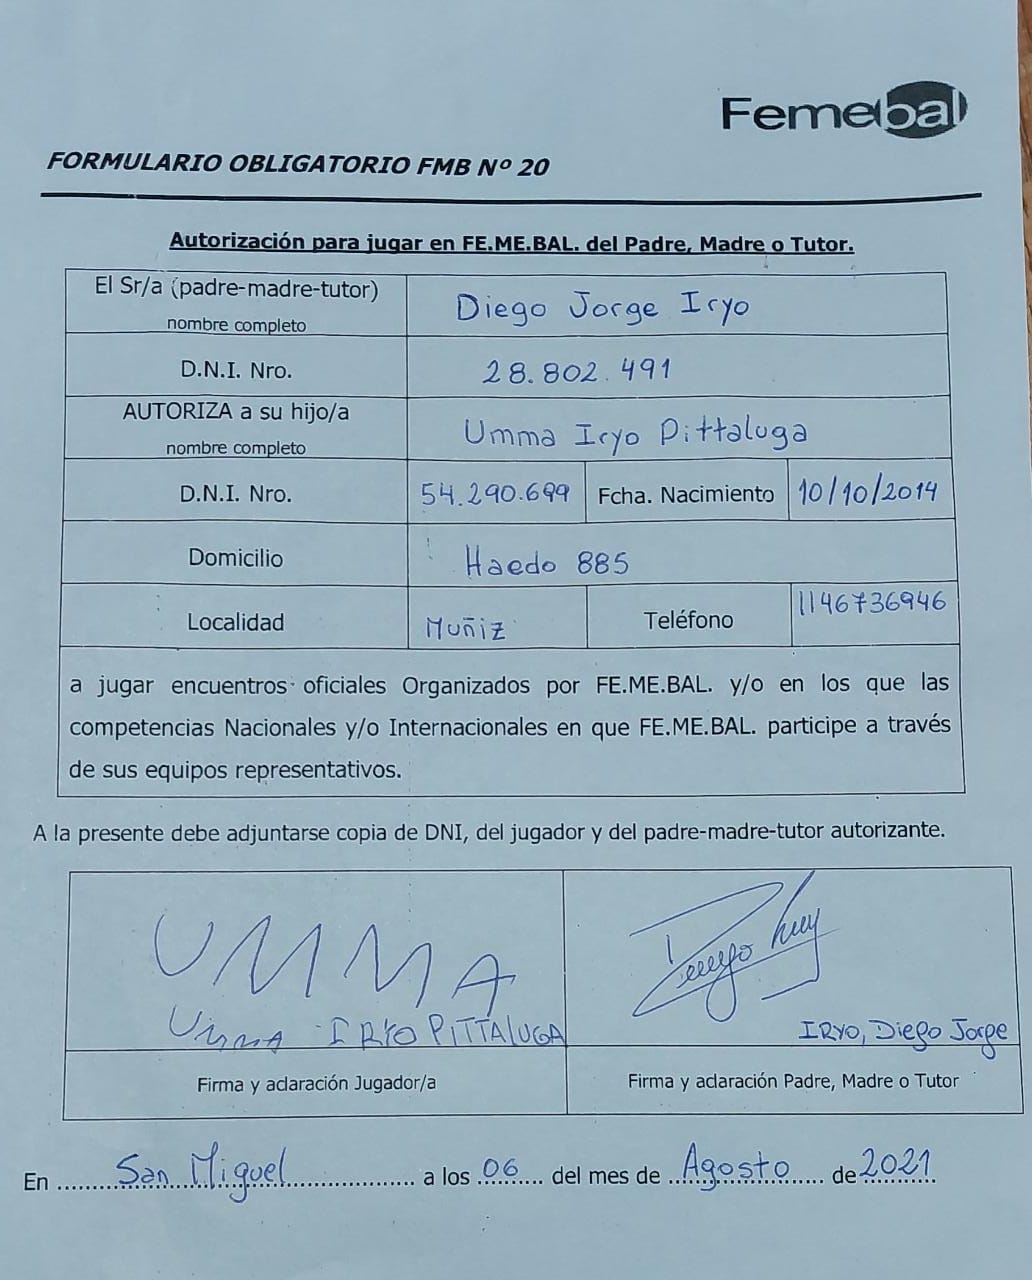 Femebal
FORMULARIO OBLIGATORIO FMB Nº 20
Autorización para jugar en FE.ME.BAL. del Padre, Madre o Tutor.
El Sr/a (padre-madre-tutor)
nombre completo
Diego Jorge Iryo
D.N.I. Nro.
28.802.491
AUTORIZA a su hijo/a
nombre completo
Umma Iryo Pittaluga
D.N.I. Nro.
54.290.699
Fcha. Nacimiento
10/10/2014
Domicilio
Haedo 885
Localidad
Muñiz
Teléfono
1146736946
a jugar encuentros oficiales Organizados por FE.ME.BAL. y/o en los que las
competencias Nacionales y/o Internacionales en que FE.ME.BAL. participe a través
de sus equipos representativos.
A la presente debe adjuntarse copia de DNI, del jugador y del padre-madre-tutor autorizante.
UMMA
Umma IRYO PITTALUGA
IRYO, Diego Jorge
Firma y aclaración Jugador/a
Firma y aclaración Padre, Madre o Tutor
En San Miguel a los 06 del mes de Agosto de 2021